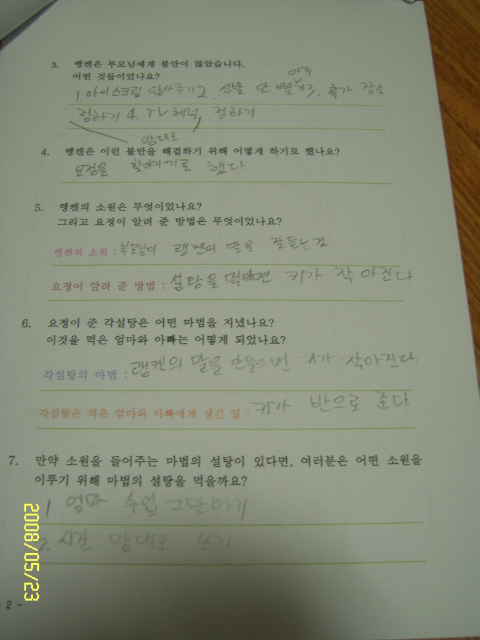 3. 랭켄은 부모님에게 불만이 많았습니다.
어떤 것들이었나요?
1. 아이스크림 안사주기 2. 선물 안 3. 휴가 장소
정하기 4. TV 채널 정하기
맘대로
4. 랭켄은 이런 불만을 해결하기 위해 어떻게 하기로 했나요?
요정을 찾아가기로 했다
5. 랭켄의 소원은 무엇이었나요?
그리고 요정이 알려 준 방법은 무엇이었나요?
랭켄의 소원 : 부모님이 랭켄의 말을 잘듣는것
요정이 알려 준 방법 : 설탕을 먹으면 키가 작아진다
6. 요정이 준 각설탕은 어떤 마법을 지녔나요?
이것을 먹은 엄마와 아빠는 어떻게 되었나요?
각설탕의 마법 : 랭켄의 말을 안들으면 키가 작아진다
각설탕은 먹은 엄마와 아빠에게 생긴 일 : 키가 반으로 준다
7. 만약 소원을 들어주는 마법의 설탕이 있다면, 여러분은 어떤 소원을
이루기 위해 마법의 설탕을 먹을까요?
1. 엄마 수업 그만하기
2. 시간 맘대로 쓰기
- 2 -
2008/05/23